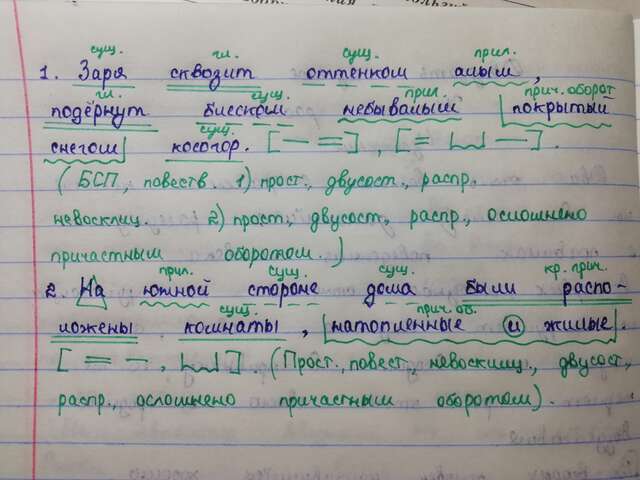 сущ. гл. сущ. прил.
1. Заря сквозит оттенком алым,
гл. сущ. прил. прич. оборот
подёрнут блеском небывалым покрытый
сущ.
снегом косогор. [— =], [= —].
(БСП, повеств. 1) прост., двусост., распр.
невосклиц. 2) прост, двусост, распр., осложнено
причастным оборотом.)
прил. сущ. сущ. кр. прич.
2. На южной стороне дома были распо-
сущ. прич. об.
ложены комнаты, натопленные и жилые.
[= —, ]. (Прост., повест., невосклиц., двусост,
распр., осложнено причастным оборотом).